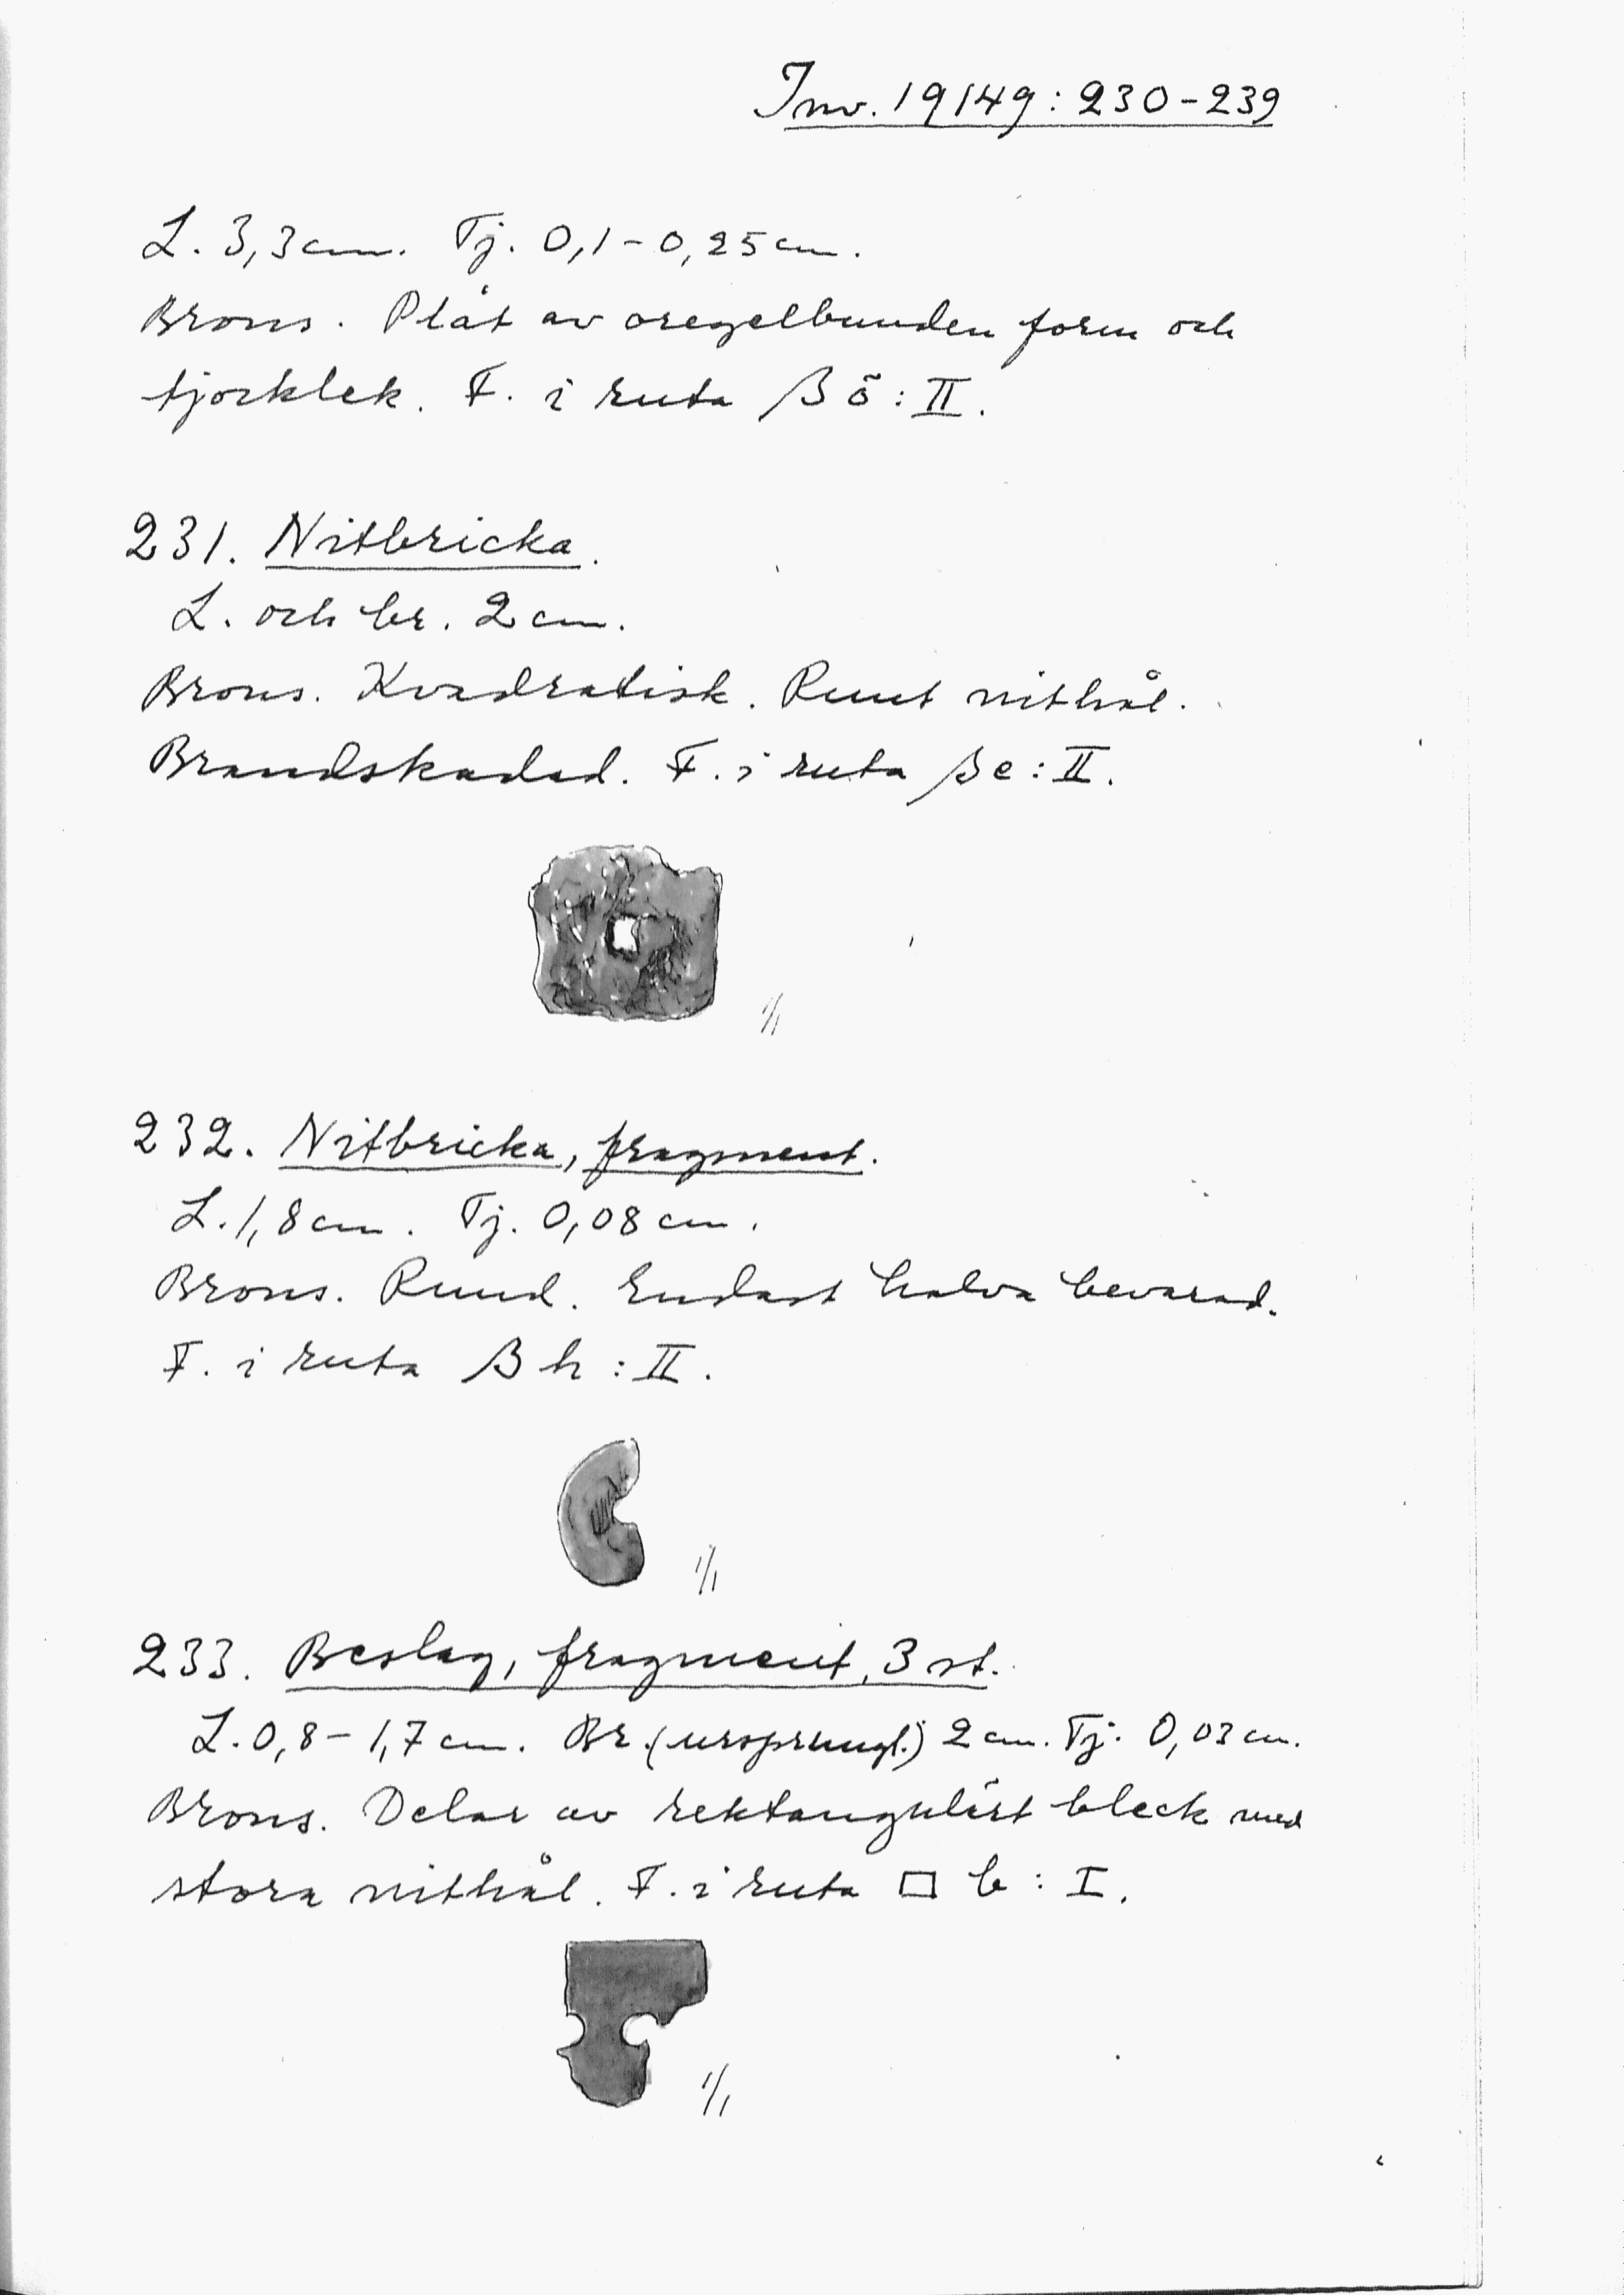 Inv. 19149:230-239
L. 3,3 cm. Tj. 0,1-0,25 cm.
Brons. Plåt av oregelbunden form och
tjocklek. F. i ruta β ö : II.
231. Nitbricka.
L. och br. 2 cm.
Brons. Kvadratisk. Runt nithål.
Brandskadad. F. i ruta β e : II.
1/1
232. Nitbricka, fragment.
L. 1,8 cm. Tj. 0,08 cm.
Brons. Rund. Endast halva bevarad.
F. i ruta β h : II.
1/1
233. Beslag, fragment, 3 st.
L. 0,8-1,7 cm. Br. (ursprungl.) 2 cm. Tj. 0,03 cm.
Brons. Delar av rektangulärt bleck med
stora nithål. F. i ruta □ b : I.
1/1